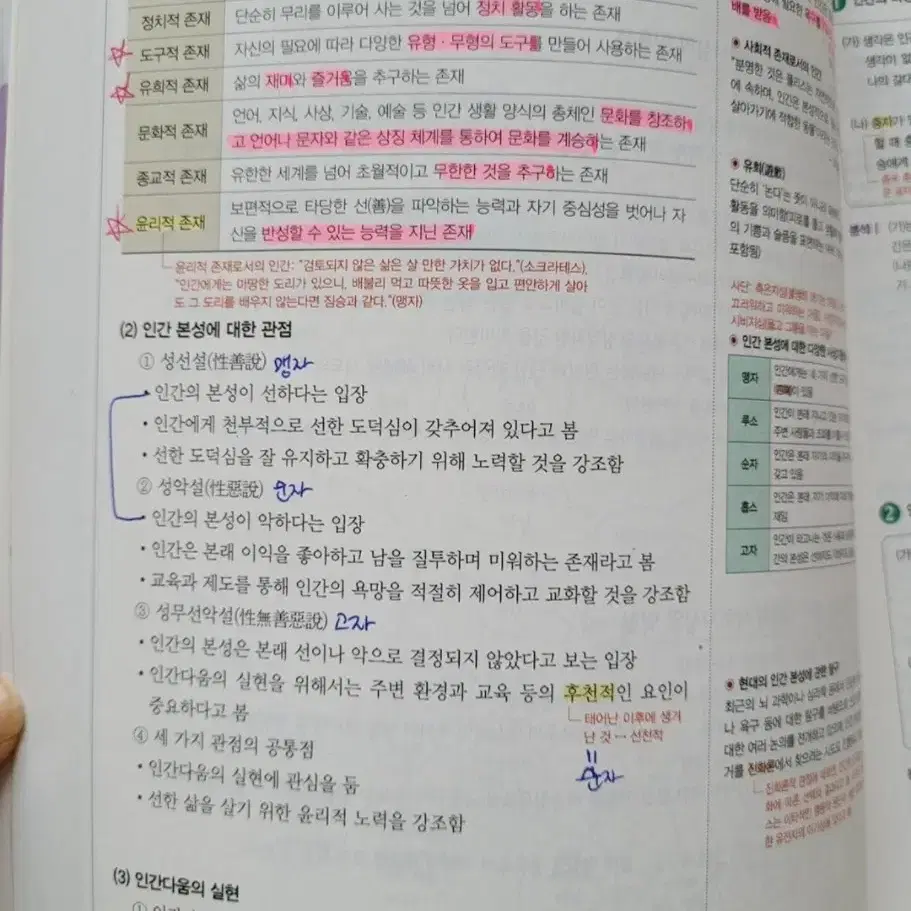 정치적 존재 단순히 무리를 이루어 사는 것을 넘어 정치 활동을 하는 존재
도구적 존재 자신의 필요에 따라 다양한 유형·무형의 도구를 만들어 사용하는 존재
유희적 존재 삶의 재미와 즐거움을 추구하는 존재
문화적 존재 언어, 지식, 사상, 기술, 예술 등 인간 생활 양식의 총체인 문화를 창조하
고 언어나 문자와 같은 상징 체계를 통하여 문화를 계승하는 존재
종교적 존재 유한한 세계를 넘어 초월적이고 무한한 것을 추구하는 존재
윤리적 존재 보편적으로 타당한 선(善)을 파악하는 능력과 자기 중심성을 벗어나 자
신을 반성할 수 있는 능력을 지닌 존재
윤리적 존재로서의 인간: "검토되지 않은 삶은 살 만한 가치가 없다."(소크라테스),
"인간에게는 마땅한 도리가 있으니, 배불리 먹고 따뜻한 옷을 입고 편안하게 살아
도 그 도리를 배우지 않는다면 짐승과 같다."(맹자)
(2) 인간 본성에 대한 관점
① 성선설(性善說) 맹자
• 인간의 본성이 선하다는 입장
• 인간에게 천부적으로 선한 도덕심이 갖추어져 있다고 봄
• 선한 도덕심을 잘 유지하고 확충하기 위해 노력할 것을 강조함
② 성악설(性惡說) 순자
• 인간의 본성이 악하다는 입장
• 인간은 본래 이익을 좋아하고 남을 질투하며 미워하는 존재라고 봄
• 교육과 제도를 통해 인간의 욕망을 적절히 제어하고 교화할 것을 강조함
③ 성무선악설(性無善惡說) 고자
• 인간의 본성은 본래 선이나 악으로 결정되지 않았다고 보는 입장
• 인간다움의 실현을 위해서는 주변 환경과 교육 등의 후천적인 요인이
중요하다고 봄
태어난 이후에 생겨
난 것 ↔ 선천적
순자
④ 세 가지 관점의 공통점
• 인간다움의 실현에 관심을 둠
• 선한 삶을 살기 위한 윤리적 노력을 강조함
(3) 인간다움의 실현
배를 받음
사회적 존재로서의 인간
"분명한 것은 폴리스는
에 속하며, 인간은 본성적으로
살아가기에 적합한 동물
유희(遊戱)
단순히 '논다'는 뜻이 아니라
활동을 의미함
의 기쁨과 슬픔을 표현하는
포함됨)
인간 본성에 대한 다양한
맹자 인간에게는 네 가지
있음
루소 인간이 본래 지니고
주변 사람들과
순자 인간은 본래
갖고 있음
홉스 인간은 본래 자기
고자 인간이 타고나는 것은
간의 본성은
현대의 인간 본성에 관한 탐구
최근의 뇌 과학이나 심리학
나 욕구 등에 대한 탐구를
대한 여러 논의를 전개하고
거를 진화론에서 찾으려는 시도도
진화론적 관점에
한 유전자의
(가) 생각은 인간
생각이 없
나의 절대
(나) 종지가 있
할 때
승에게
2